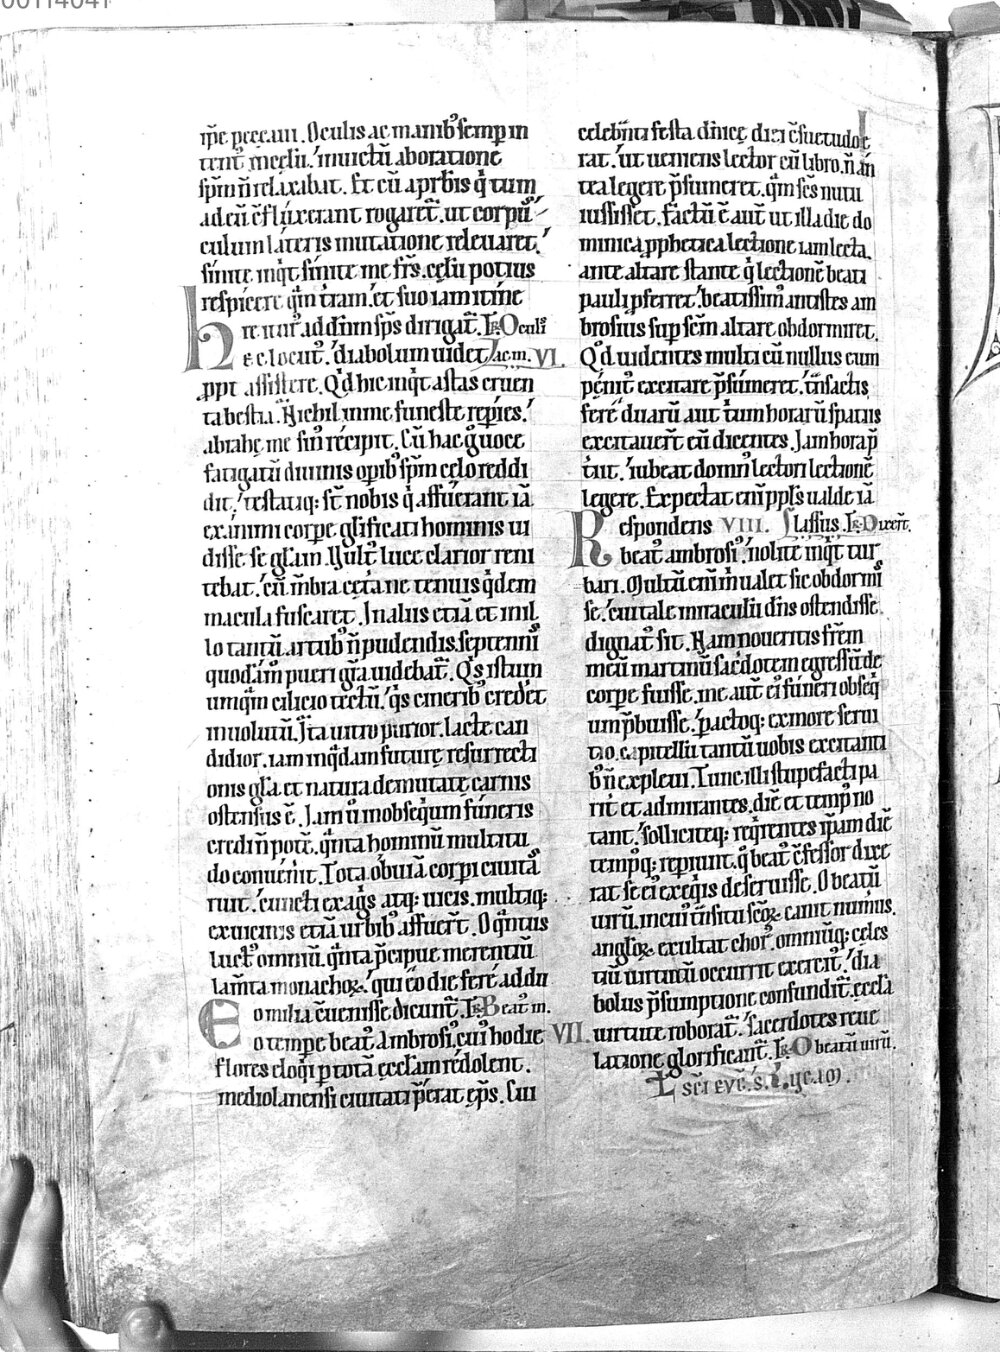 00114041
Oculis ac manibꝰ semp in
celũ intentis inuictũ ab oratione
spm̃ ñ relaxabat. Et cũ a prb̃is q̃ tum
ad eũ ↄ̃fluxerant rogaret̃. ut corpuſ
culum lateris mutatione releuaret.
sinite. inq̃t sinite me frs̃. celũ potius
respicere q̃m tr̃am. et suo iam itine
re itur̃ ad dñm sps̃ dirigat̃. R̃ Oculis
Hec locut̃. diabolum uidet ac m. VI.
ppe assistere. Qd̃ hic inq̃t astas cruen
ta bestia. Nichil in me funeste repies.
abrahe me sin̄ recipit. Cũ hac g̊ uoce
fatigatũ diuinis opibꝰ spm̃ celo reddi
dit. testatiq; st̃ nobis q̃ affuerant iã
exanimi corpe glificati hominis ui
disse se gl̃am. Uult̃ luce clarior reni
tebat. cũ m̃bra cetã ne tenuis q̃dem
macula fuscaret. In aliis etiã et in il
lo tantũ artubꝰ ñ pudendis septenni
quodãm pueri gr̃a uidebat̃. Qs̃ istum
umq̃m cilicio tectũ. q̃s cineribꝰ crederet
inuolutũ. Ita uitro purior. lacte can
didior. iam in q̃dam future resurrecti
onis gl̃a et natura demutate carnis
ostensus ẽ. Iam ũ in obseq̃um funeris
credi ñ potẽ. q̃nta hominũ multitu
do conuenit. Tota obuiã corpi ciuitã
ruit. cuncti ex agris atq; uicis. multiq;
ex uicinis etiã urbibꝰ affuer̃t. O q̃ntus
luct̃ omniũ. q̃nta p̃cipue merentiũ
lam̃ta monachoꝝ. qui eo die fere ad duo
milia ↄ̃uenisse dicunt̃. R̃ Beat̃ m.
Eo tempe beat̃ Ambrosiꝰ. cuiꝰ hodie VII.
flores eloq̃i p totã eccl̃am redolent.
mediolanensi ciuitati p̃erat ep̃s. Cui
celebñti festa dñicẽ diei ↄ̃suetudo e
rat. ut ueniens lector cũ libro. ñ an
tea legere p̃sumeret. q̃m sc̃s nutu
iussisset. factũ ẽ aut̃ ut illa die do
minica pphetica lectione iam lecta.
ante altare stante q̃ lectionẽ beati
pauli pferret. beatissimꝰ antistes am
brosius sup sc̃m altare obdormiret.
Qd̃ uidentes multi cũ nullus eum
penitꝰ excitare p̃sumeret. t̃nsactis
fere duarũ aut t̃um horarũ spatiis
excitauer̃t eũ dicentes. Iam hora p̃
terit. iubeat domnꝰ lectori lectionẽ
legere. Expectat eni pplꝰs ualde iã
Respondens VIII. lassus. R̃ Dixer̃t.
beat̃ ambrosiꝰ. nolite inq̃t tur
bari. Multũ eni m̃ ualet sic obdormis
se. cui tale miraculũ dñs ostendisse
dignat̃ sit. Nam noueritis frẽm
meũ martinũ sac̃dotem egressũ de
corpe fuisse. me aut̃ eiꝰ funeri obseq̃
um p̃buisse. pactoq; ex more serui
tio. capitellũ tantũ uobis excitanti
bꝰ ñ expleui. Tunc illi stupefacti pa
rit̃ et admirantes. diẽ et tempꝰ no
tant. solliciteq; req̃rentes ip̃am diẽ
tempꝰq; repiunt. q̃ beat̃ ↄ̃fessor dixe
rat se eiꝰ exeq̃iis deseruisse. O beatũ
uirũ. in cuiꝰ t̃nsitu sc̃oꝝ canit numꝰus.
angl̃oꝝ exultat chorꝰ. omniũq; celes
tiũ uirtutũ occurrit exercitꝰ. dia
bolus p̃sumptione confundit̃. eccl̃a
uirtute roborat̃. sacerdotes reue
latione glorificant̃. R̃ O beatũ uirũ.